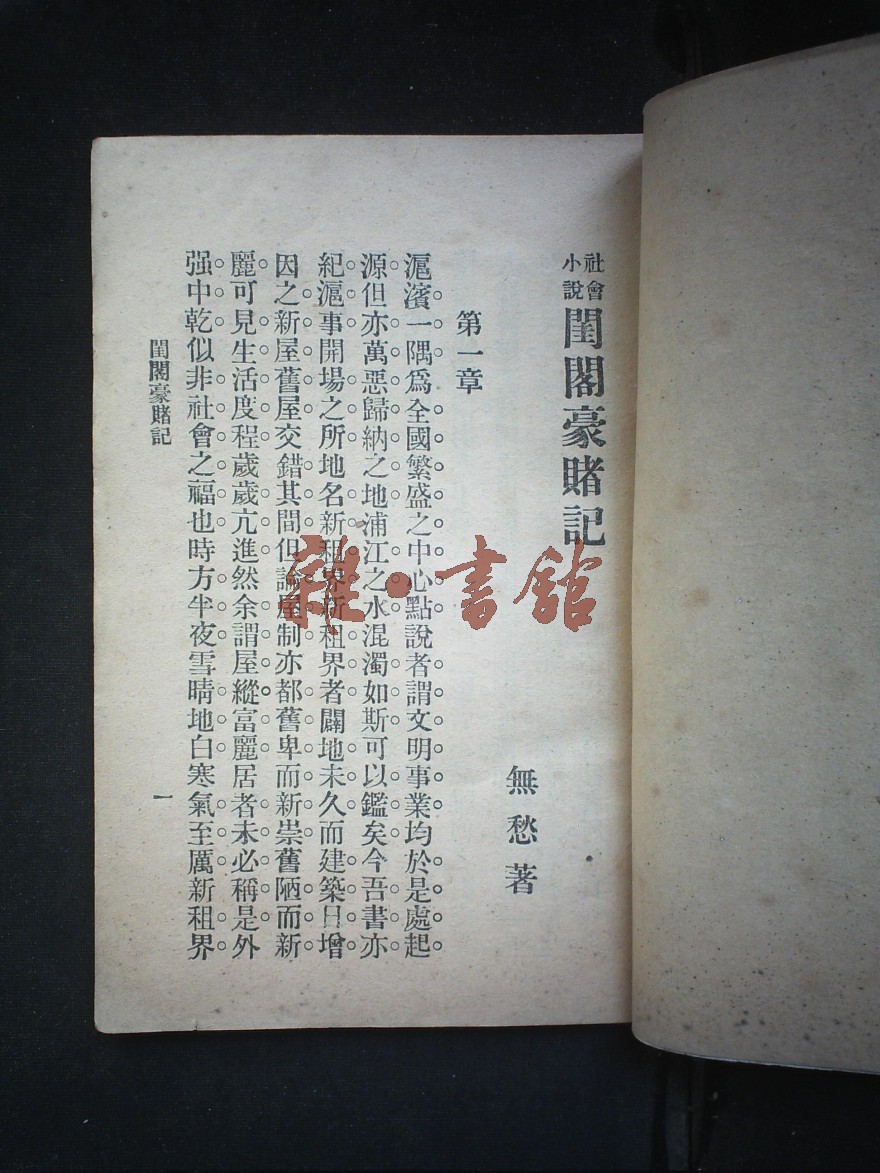 社會
小說
閨閣豪賭記
無愁著
第一章
滬濱一隅爲全國繁盛之中心點說者謂文明事業均於是處起
源但亦萬惡歸納之地浦江之水混濁如斯可以鑑矣今吾書亦
紀滬事開場之所地名新租界新租界者闢地未久而建築日增
因之新屋舊屋交錯其間但論屋制亦都舊卑而新崇舊陋而新
麗可見生活度程歲歲亢進然余謂屋縱富麗居者未必稱是外
强中乾似非社會之福也時方半夜雪晴地白寒氣至厲新租界
閨閣豪賭記
一
雜·書館